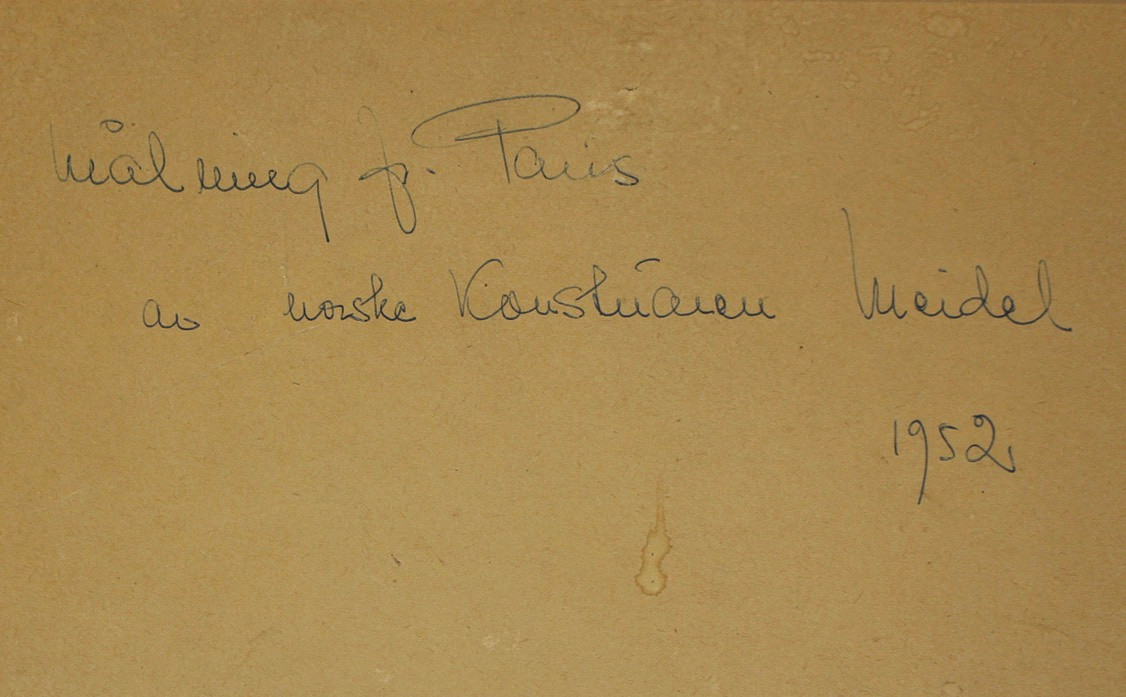 Målning fr. Paris
av norske Konstnären Meidel
1952